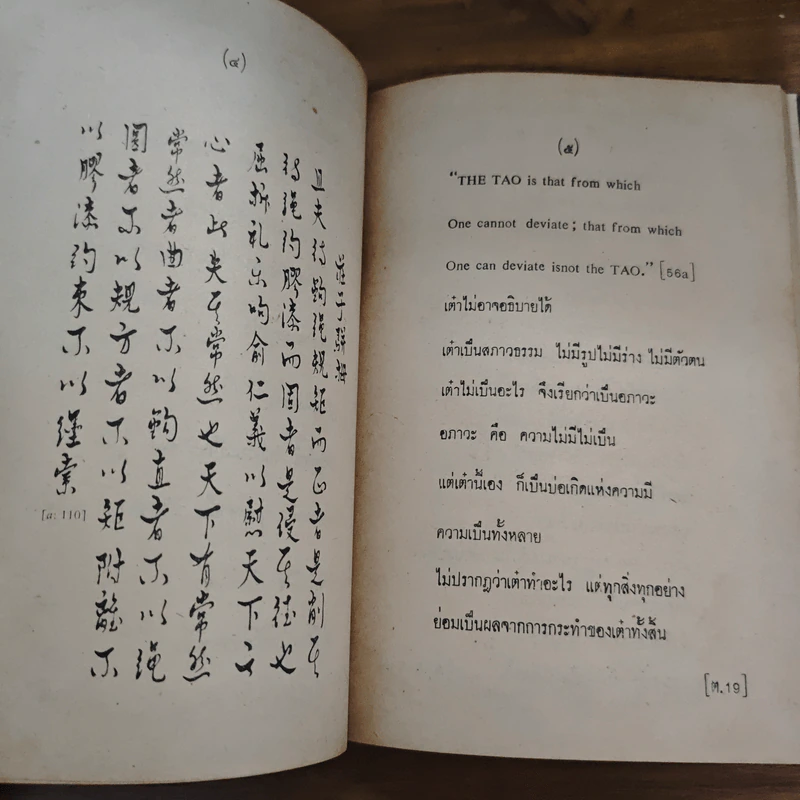 (๔)
莊子駢拇
且夫待鉤繩規矩而正者是削其
待繩約膠漆而固者是侵其德也
屈折礼乐呴俞仁義以慰天下之
心者此失其常然也天下有常然
常然者曲者不以鉤直者不以繩
圓者不以規方者不以矩附離不
以膠漆約束不以纆索
[a: 110]
(๕)
"THE TAO is that from which
One cannot deviate; that from which
One can deviate isnot the TAO." [56a]
เต๋าไม่อาจอธิบายได้
เต๋าเป็นสภาวธรรม ไม่มีรูปไม่มีร่าง ไม่มีตัวตน
เต๋าไม่เป็นอะไร จึงเรียกว่าเป็นอภาวะ
อภาวะ คือ ความไม่มีไม่เป็น
แต่เต๋านี้เอง ก็เป็นบ่อเกิดแห่งความมี
ความเป็นทั้งหลาย
ไม่ปรากฎว่าเต๋าทำอะไร แต่ทุกสิ่งทุกอย่าง
ย่อมเป็นผลจากการกระทำของเต๋าทั้งสิ้น
[ต.19]